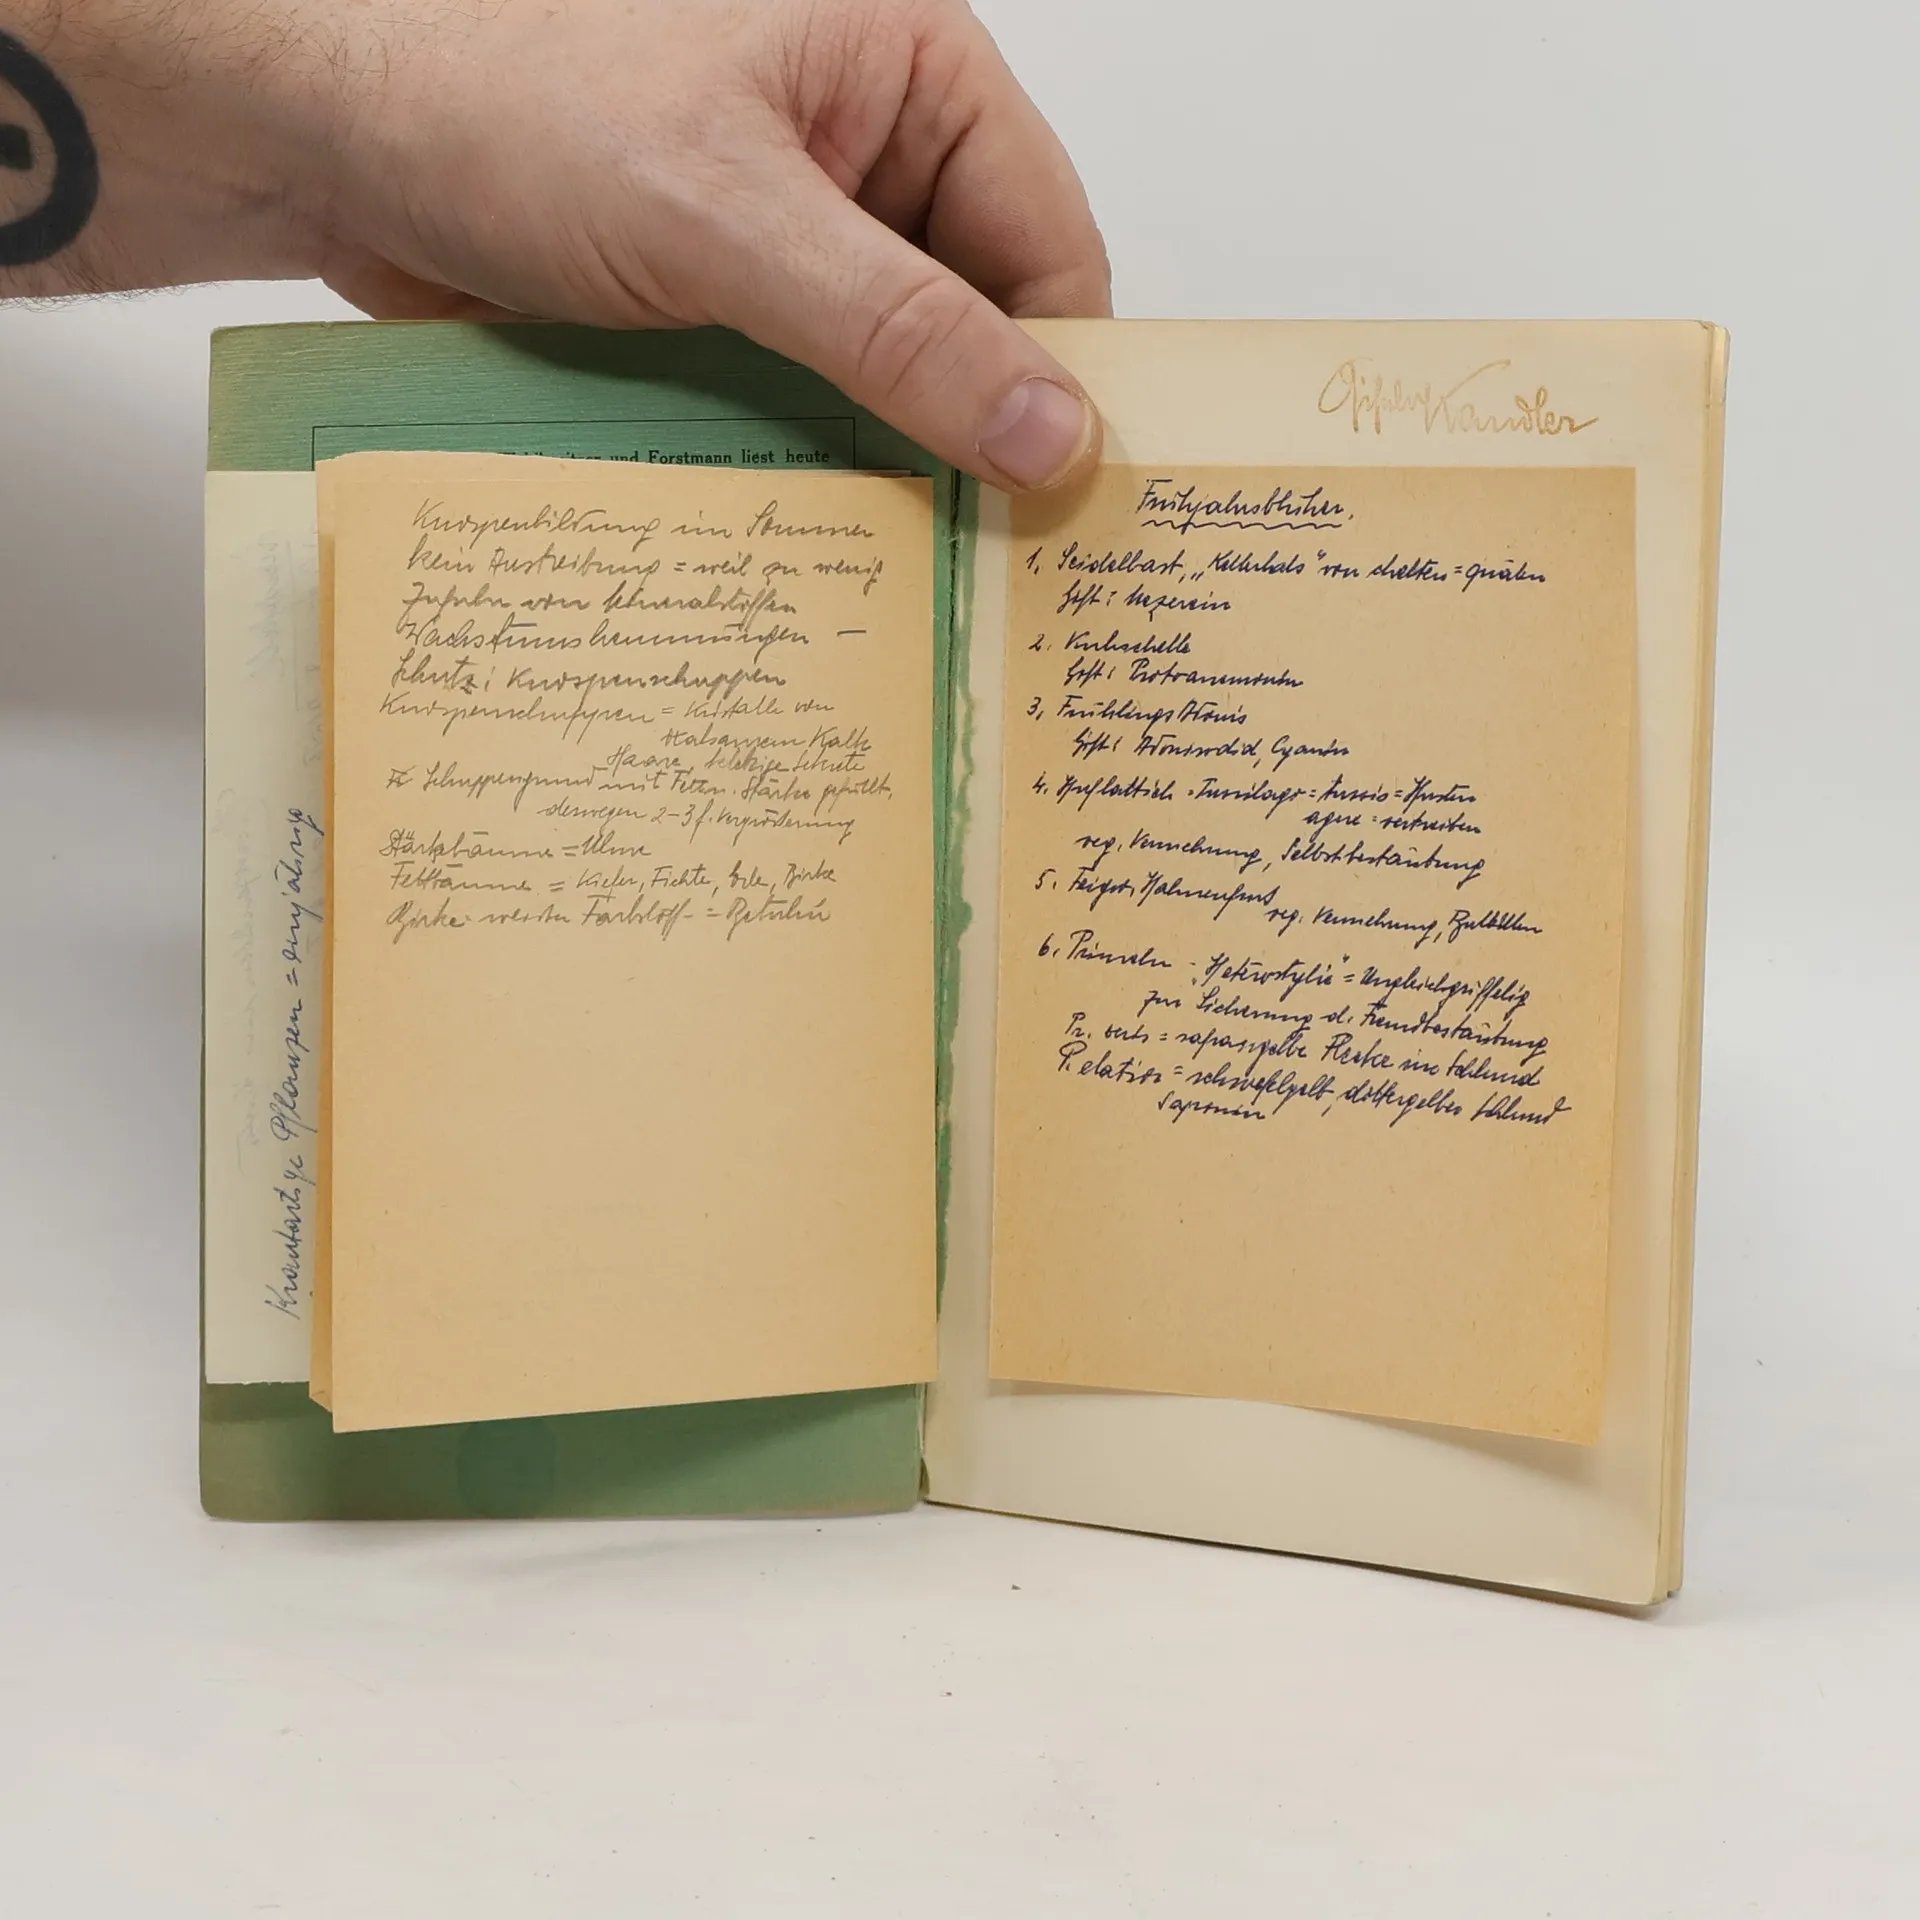 und Forstmann liest heute
Knospenbildung im Sommer
kein Austreibung = weil zu wenig
Zufuhr von Mineralstoffen
Wachstumshemmungen —
Schutz: Knospenschuppen
Knospenschuppen = Kristalle von
oxalsaurem Kalk
Haare, klebrige Sekrete
Schuppengrund mit Fetten. Stärke gefüllt,
deswegen 2-3 f. Vergrößerung
Stärkebäume = Ulme
Fettbäume = Kiefer, Fichte, Erle, Birke
Birke = weißer Farbstoff = Betulin
Krautartige Pflanzen = einjährig
Kandler
Frühjahrsblüher.
1. Seidelbast, „Kellerhals" von chelten = quälen
Gift: Mezerein
2. Kuhschelle
Gift: Protoanemonin
3. Frühlings Adonis
Gift: Adonisodid, Cyanin
4. Huflattich = Tussilago = tussis = Husten
agere = vertreiben
veg. Vermehrung, Selbstbestäubung
5. Feigw. Hahnenfuß
veg. Vermehrung, Bulbillen
6. Primeln - „Heterostylie" = Ungleichgriffelig
zur Sicherung d. Fremdbestäubung
Pr. veris = safrangelbe Flecke im Schlund
P. elatior = schwefelgelb, dottergelber Schlund
Saponin